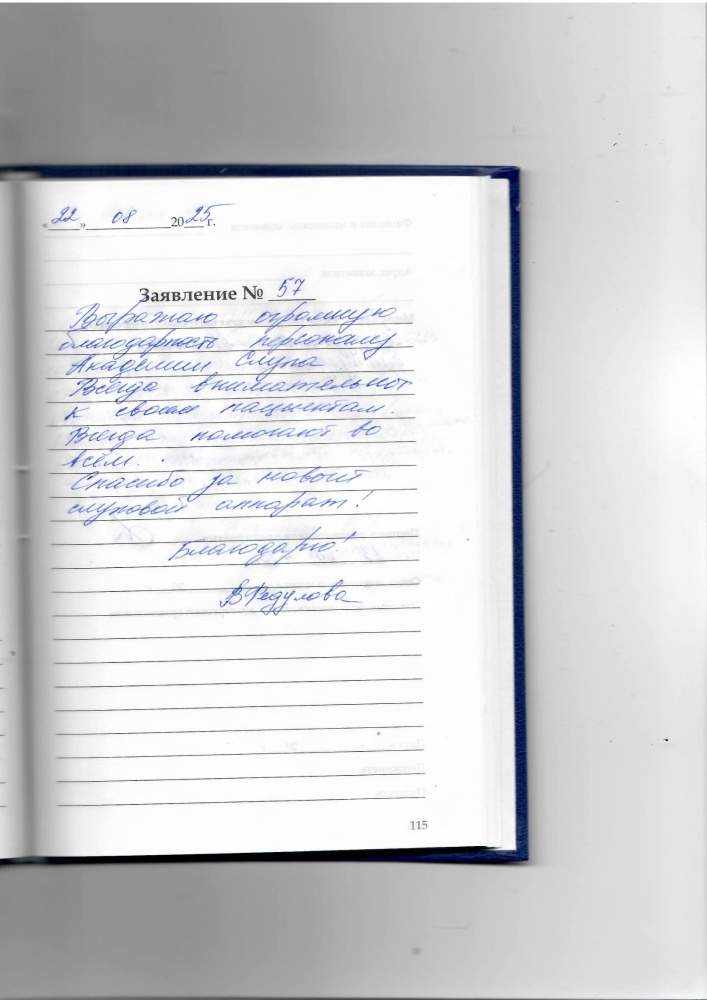 «22» 08 2025 г.
Заявление № 57
Выражаю огромную
благодарность персоналу
Академии Слуха
Всегда внимательны
к своим пациентам.
Всегда помогают во
всём.
Спасибо за новый
слуховой аппарат!
Благодарю!
В Федулова
115